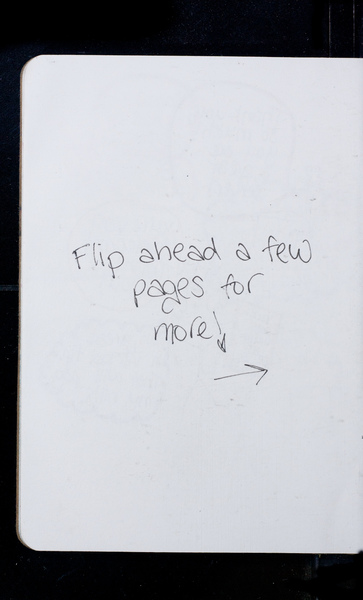 Flip ahead a few
pages for
more!